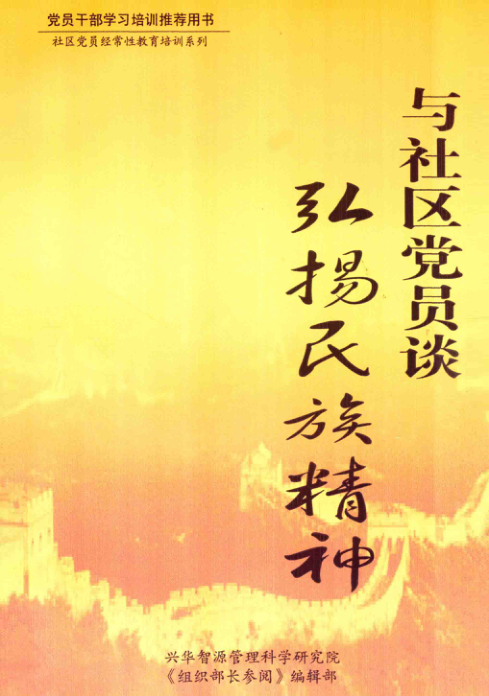 党员干部学习培训推荐用书
社区党员经常性教育培训系列
与社区党员谈
弘扬民族精神
兴华智源管理科学研究院
《组织部长参阅》编辑部